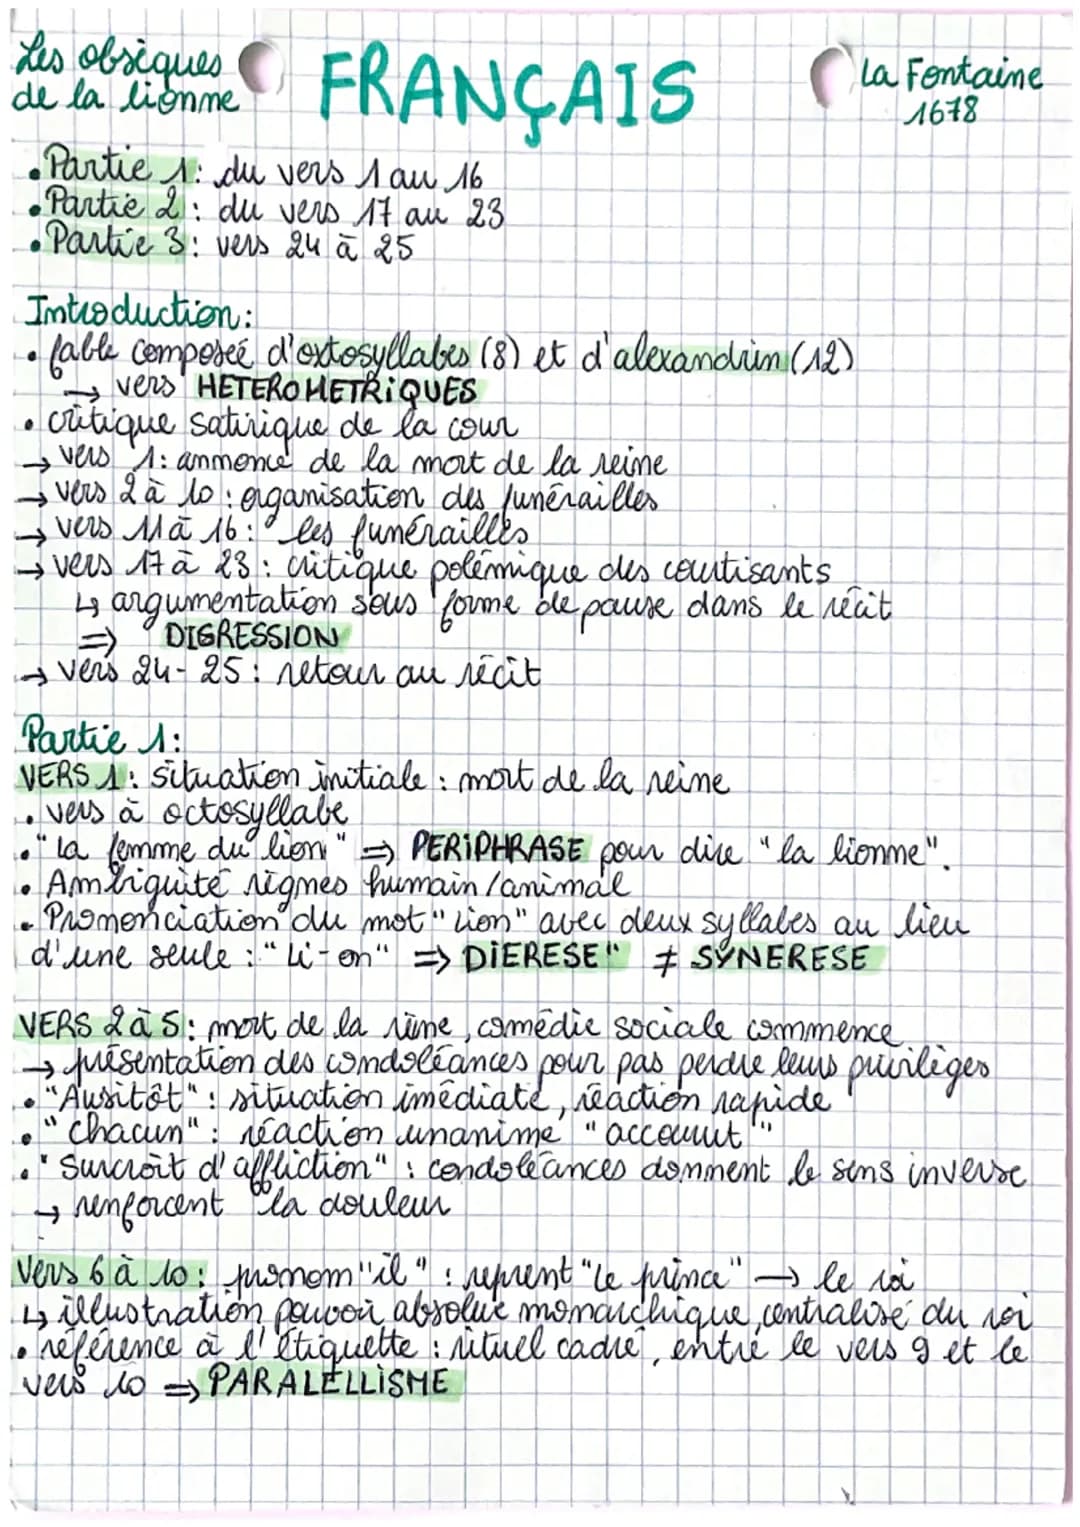 Les obsèques
de la lionne
FRANÇAIS
La Fontaine
1678
• Partie 1 : du vers 1 au 16
• Partie 2 : du vers 17 au 23
• Partie 3 : vers 24 à 25
Introduction :
• fable composeé d'oxtosyllabes (8) et d'alexandrin (12)
→ vers HÉTEROMETRiQUES
• critique satirique de la cour
→ vers 1 : annonce de la mort de la reine
→ vers 2 à 10 : organisation des funérailles
→ vers 11 à 16 : les funérailles
→ vers 17 à 23 : critique polémique des courtisants
↳ argumentation sous forme de pause dans le récit
⇒ DIGRESSION
→ vers 24-25 : retour au récit
Partie 1 :
VERS 1 : situation initiale : mort de la reine
• vers à octosyllabe
• "la femme du lion" ⇒ PERiPHRASE pour dire "la lionne".
• Ambiguité règnes humain/animal
• Prononciation du mot "lion" avec deux syllabes au lieu
d'une seule : "Li-on" ⇒ DiERESE" ≠ SYNERESE
VERS 2 à 5 : mort de la reine, comédie sociale commence
→ présentation des condoléances pour pas perdre leurs privilèges
• "Ausitôt" : situation imédiate, réaction rapide
• "chacun" : réaction unanime "accourut"
• "Surcroît d'affliction" : condoléances donnent le sens inverse
→ renforcent la douleur
Vers 6 à 10 : pronom "il" : reprent "le prince" → le roi
↳ illustration pouvoir absolue monarchique, centralisé du roi
• référence à l'étiquette : rituel cadré, entre le vers 9 et le
vers 10 ⇒ PARALELLiSME